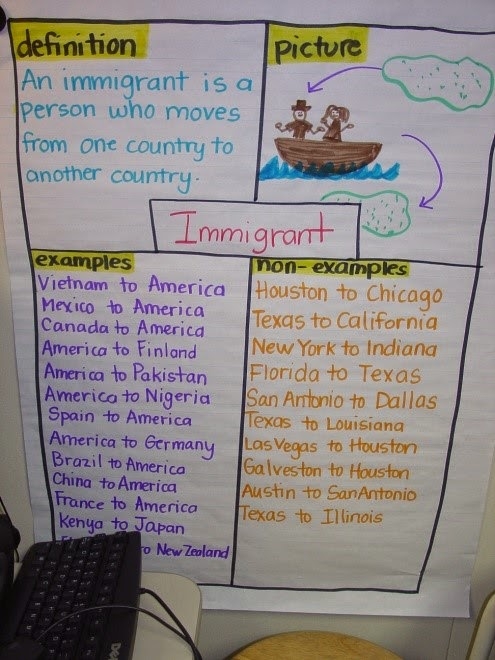 definition
An immigrant is a
person who moves
from one country to
another country.
picture
Immigrant
examples
Vietnam to America
Mexico to America
Canada to America
America to Finland
America to Pakistan
America to Nigeria
Spain to America
America to Germany
Brazil to America
China to America
France to America
Kenya to Japan
to New Zealand
non-examples
Houston to Chicago
Texas to California
New York to Indiana
Florida to Texas
San Antonio to Dallas
Texas to Louisiana
Las Vegas to Houston
Galveston to Houston
Austin to San Antonio
Texas to Illinois
DELL